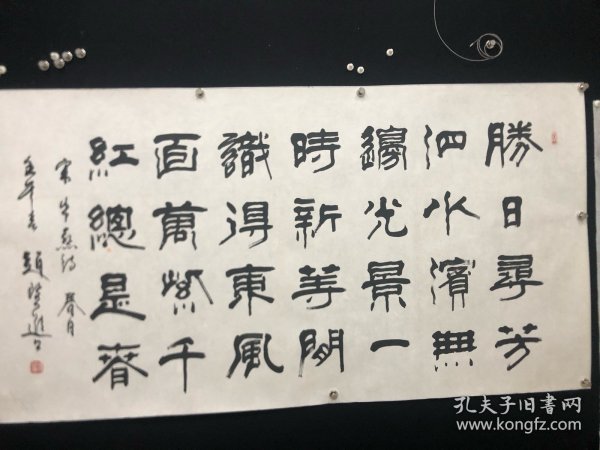 勝日尋芳
泗水濱無
邊光景一
時新等閒
識得東風
面萬紫千
紅總是春
宋朱熹詩 春日
壬午春 趙望進
孔夫子旧書网
www.kongfz.com